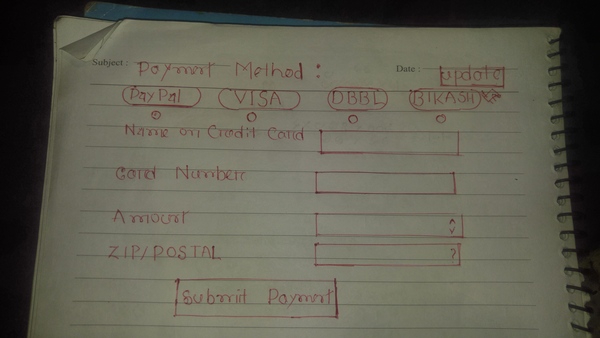 Subject :
Date :
Payment Method :
update
PayPal VISA DBBL BIKASH
Name on Credit Card
Card Number
Amount
ZIP/POSTAL ?
Submit Payment